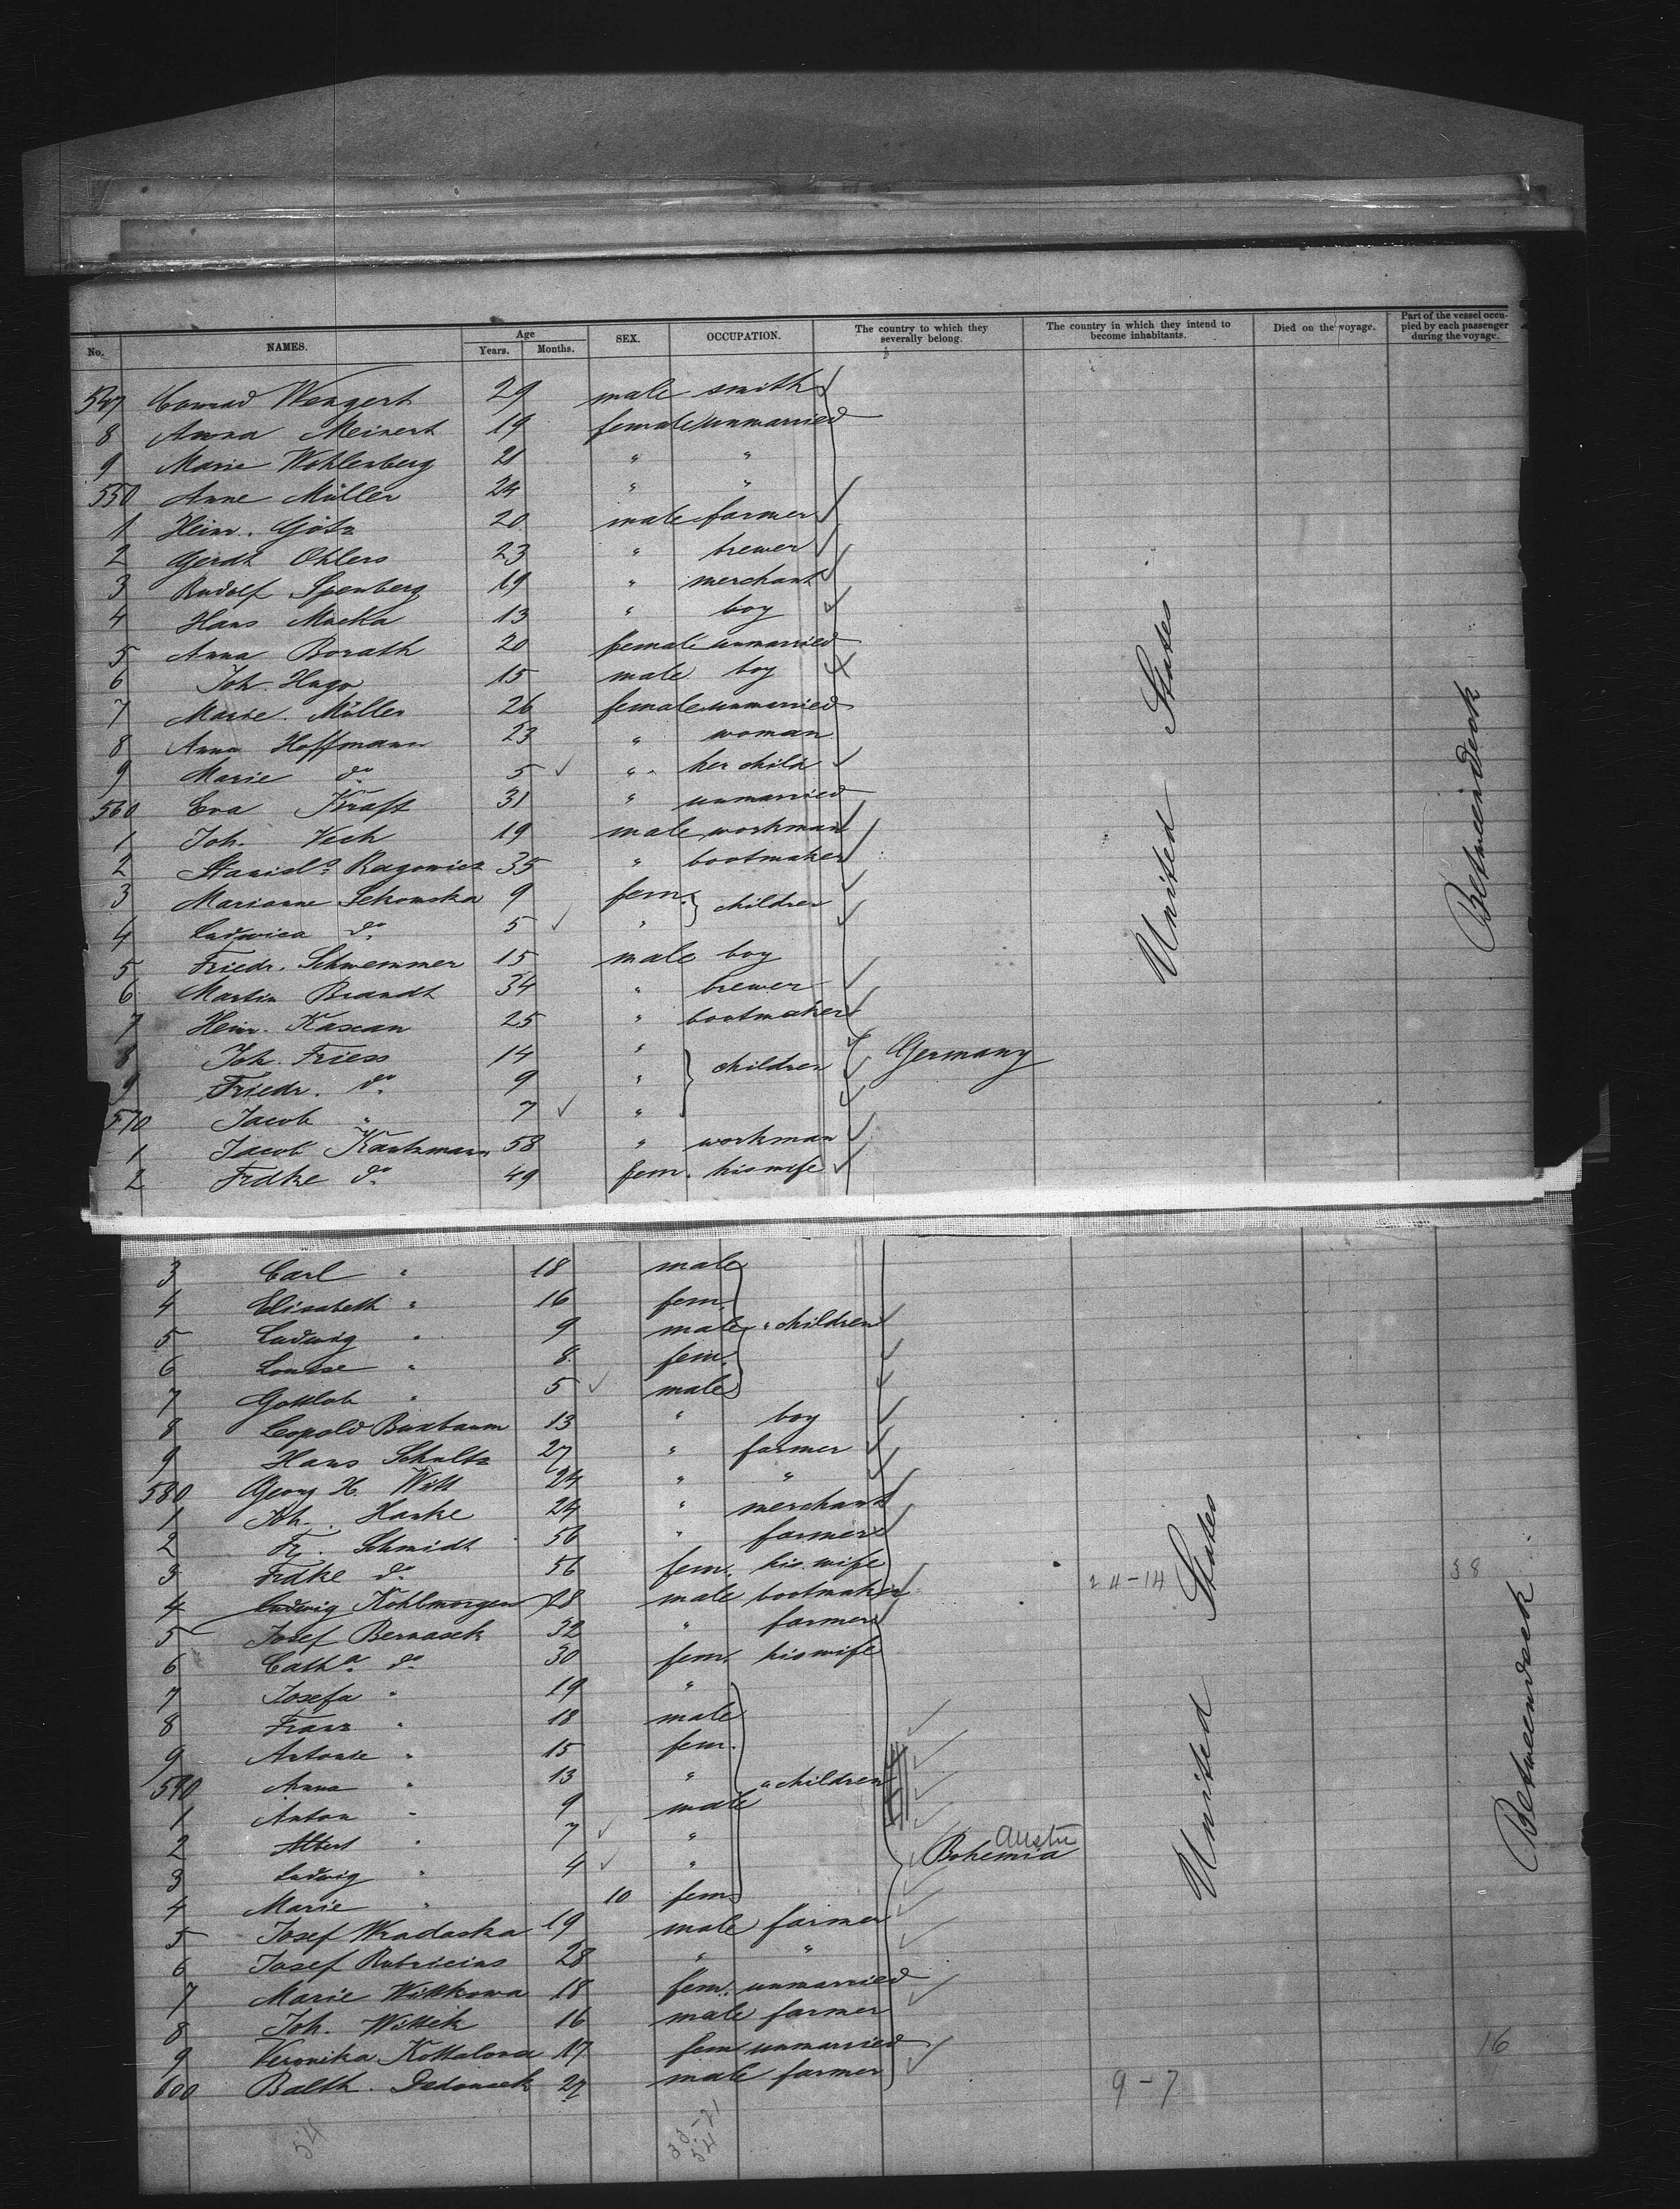 No. NAMES. Age Years. Months. SEX. OCCUPATION. The country to which they severally belong. The country in which they intend to become inhabitants. Died on the voyage. Part of the vessel occupied by each passenger during the voyage.
547 Conrad Wengert 29 male smith
8 Anna Meinert 19 female unmarried
9 Marie Wohlenberg 21 " "
550 Anne Müller 24 " "
1 Heinr. Götz 20 male farmer
2 Gerdt Ohlers 23 " brewer
3 Rudolf Spenberg 19 " merchant
4 Hans Macka 13 " boy
5 Anna Borath 20 female unmarried
6 Joh. Hugo 15 male boy
7 Marie Müller 26 female unmarried
8 Anna Hoffmann 23 " woman
9 Marie do 5 " her child
560 Eva Kraft 31 " unmarried
1 Joh. Vech 19 male workman
2 Stanisls. Ragowicz 35 " bootmaker
3 Marianne Sekowska 9 fem. children
4 Ludwica do 5 "
5 Friedr. Schwemmer 15 male boy
6 Martin Brandt 34 " brewer
7 Heinr. Kascan 25 " bootmaker
8 Joh. Friess 14 " children Germany
9 Friedr. do 9 "
570 Jacob " 7 "
1 Jacob Kautzmann 58 " workman
2 Frdke do 49 fem. his wife
United States
Betweendeck
3 Carl " 18 male
4 Elisabeth " 16 fem.
5 Ludwig " 9 male " children
6 Louise " 8 fem.
7 Gottlob " 5 male
8 Leopold Buxbaum 13 " boy
9 Hans Schultz 27 " farmer
580 Georg H. Witt 24 " "
1 Joh. Hanke 24 " merchant
2 Fr. Schmidt 56 " farmer
3 Frdke do 56 fem. his wife 24-14 38
4 Ludwig Kohlmorgen 28 male bootmaker
5 Josef Bernasek 32 " farmer
6 Catha. do 30 fem. his wife
7 Josefa " 19 "
8 Franz " 18 male
9 Antonie " 15 fem.
590 Anna " 13 " " children
1 Anton " 9 male
2 Albert " 7 "
3 Ludwig " 4 " Bohemia Austri
4 Marie " 10 fem.
5 Josef Wkadaska 19 male farmer
6 Josef Rubricius 28 " "
7 Marie Wittkowa 18 fem. unmarried
8 Joh. Wittek 16 male farmer
9 Veronika Kottalova 17 fem unmarried 16
600 Balth. Dadousek 27 male farmer 9-7
United States
Betweendeck
54
33-21
54